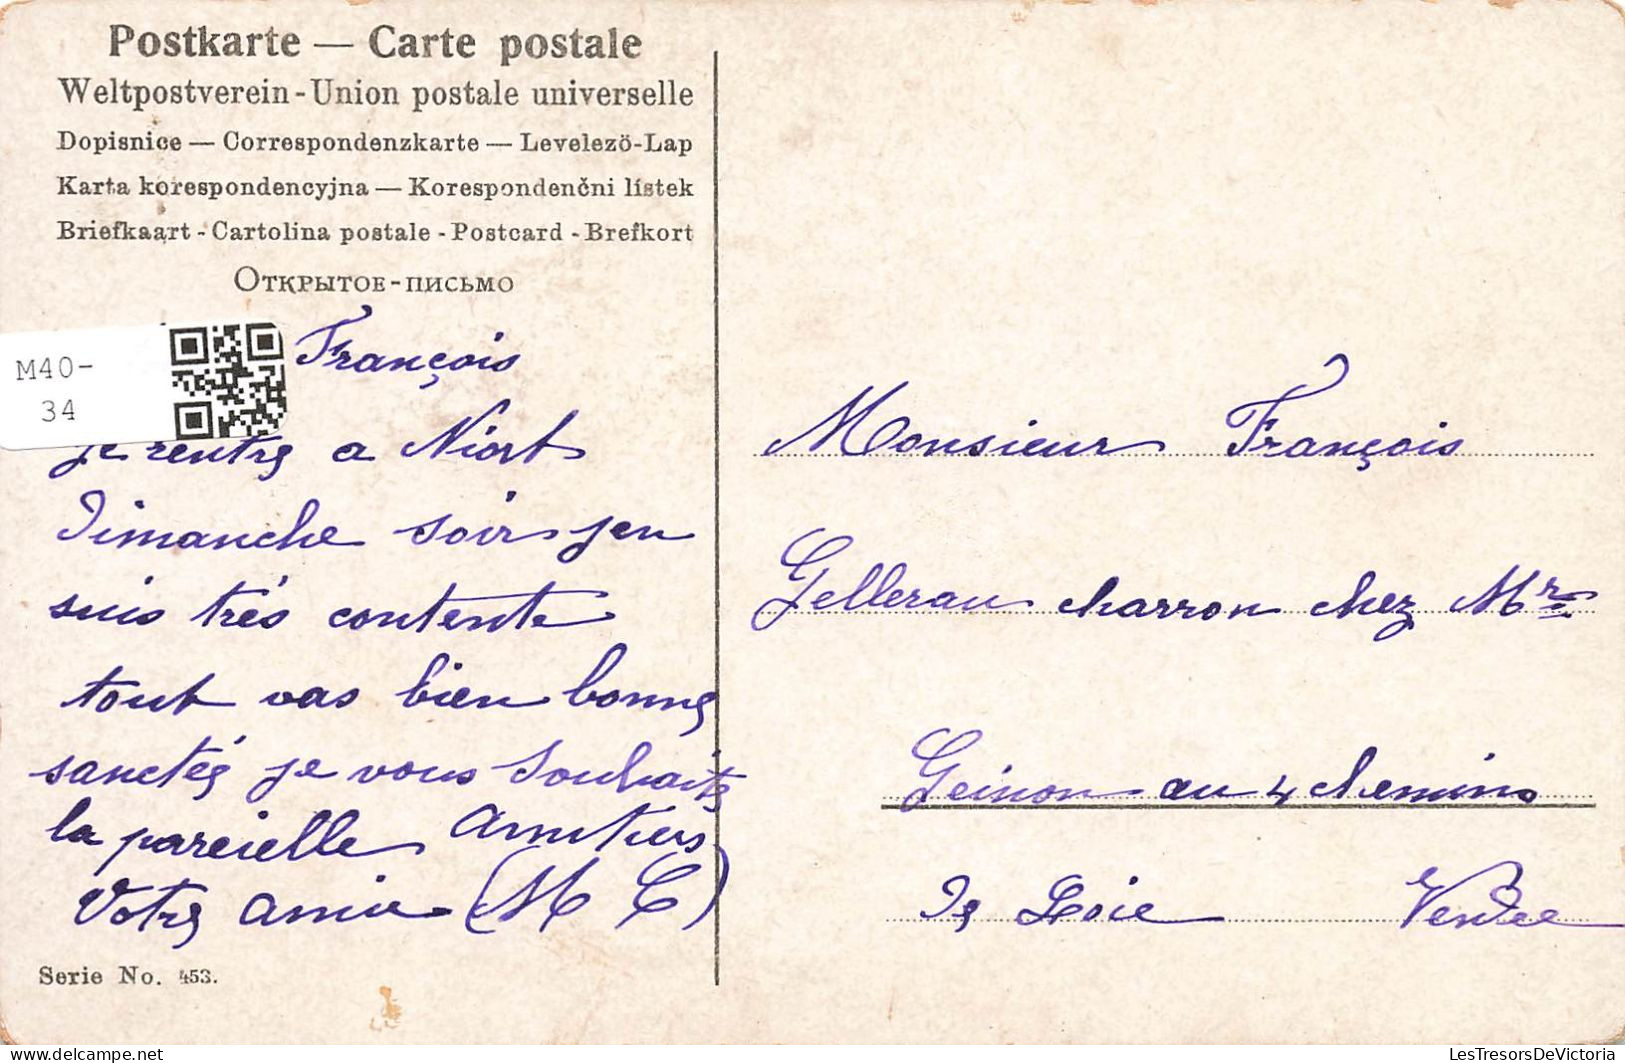 Postkarte — Carte postale
Weltpostverein - Union postale universelle
Dopisnice — Correspondenzkarte — Levelező-Lap
Karta korespondencyjna — Korespondenčni lístek
Briefkaart - Cartolina postale - Postcard - Brefkort
Открытое-письмо
M40-
34
François
je rentre a Niort
Dimanche soir jen
suis trés contente
tout vas bien bonne
sanctée je vous souhaite
la pareielle Amitiers
Votre amie (M C)
Serie No. 453.
Monsieur François
Gellerau charron chez Mr
Geinon au 4 chemins
De Loie Vendee
delcampe.net
LesTresorsDeVictoria